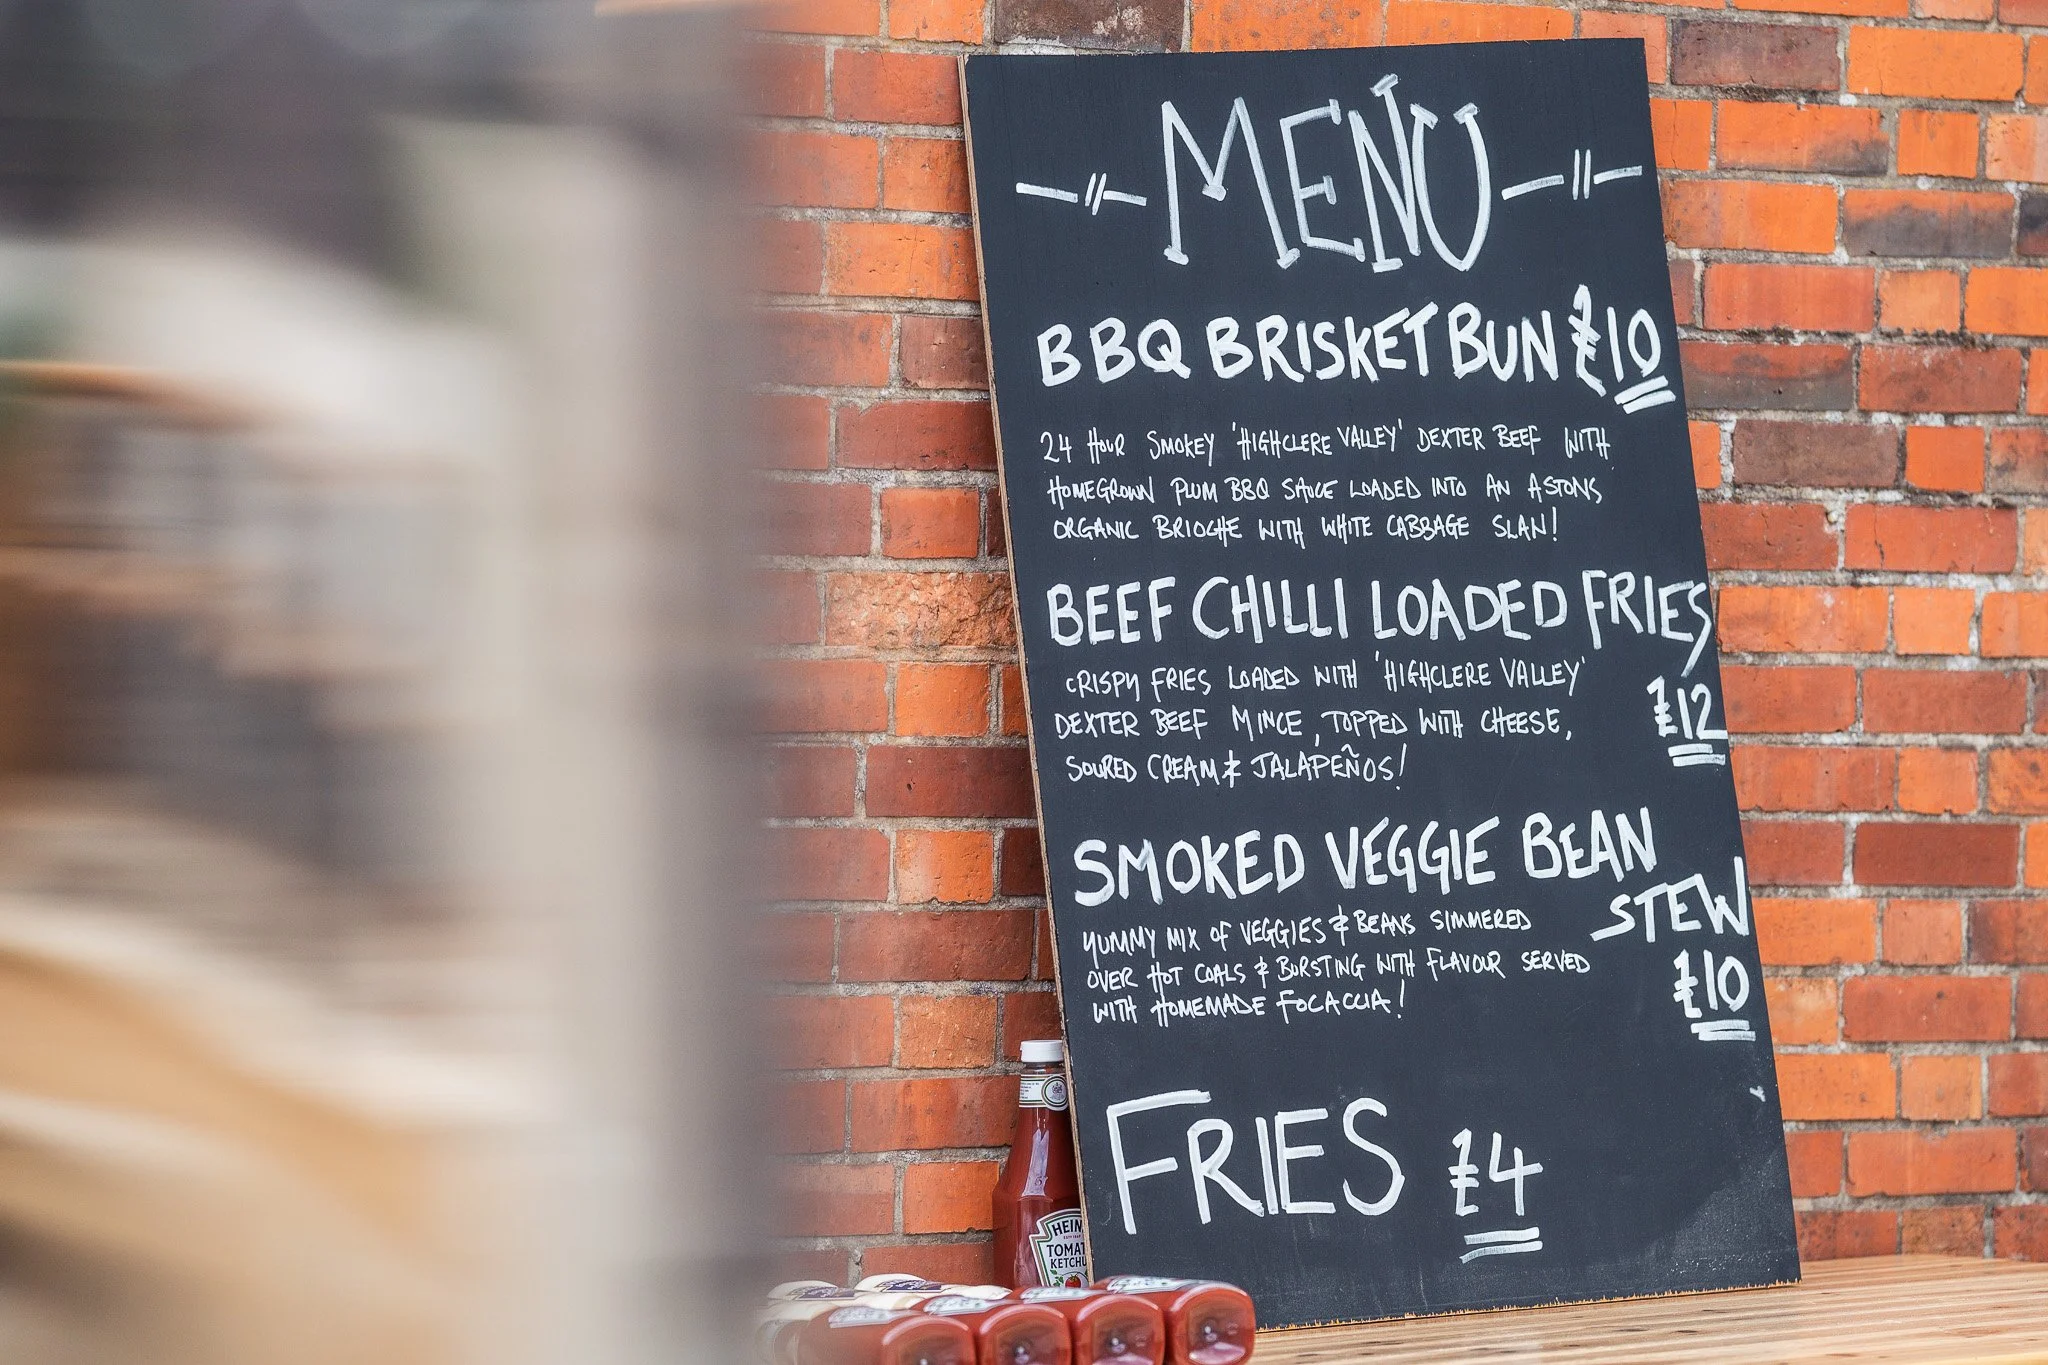 MENU
BBQ BRISKET BUN £10
24 HOUR SMOKEY 'HIGHCLERE VALLEY' DEXTER BEEF WITH
HOMEGROWN PLUM BBQ SAUCE LOADED INTO AN ASTONS
ORGANIC BRIOCHE WITH WHITE CABBAGE SLAW!
BEEF CHILLI LOADED FRIES
CRISPY FRIES LOADED WITH 'HIGHCLERE VALLEY'
DEXTER BEEF MINCE, TOPPED WITH CHEESE,
SOURED CREAM & JALAPEÑOS!
£12
SMOKED VEGGIE BEAN
STEW
YUMMY MIX OF VEGGIES & BEANS SIMMERED
OVER HOT COALS & BURSTING WITH FLAVOUR SERVED
WITH HOMEMADE FOCACCIA!
£10
FRIES £4
HEIN
TOMAT
KETCHU